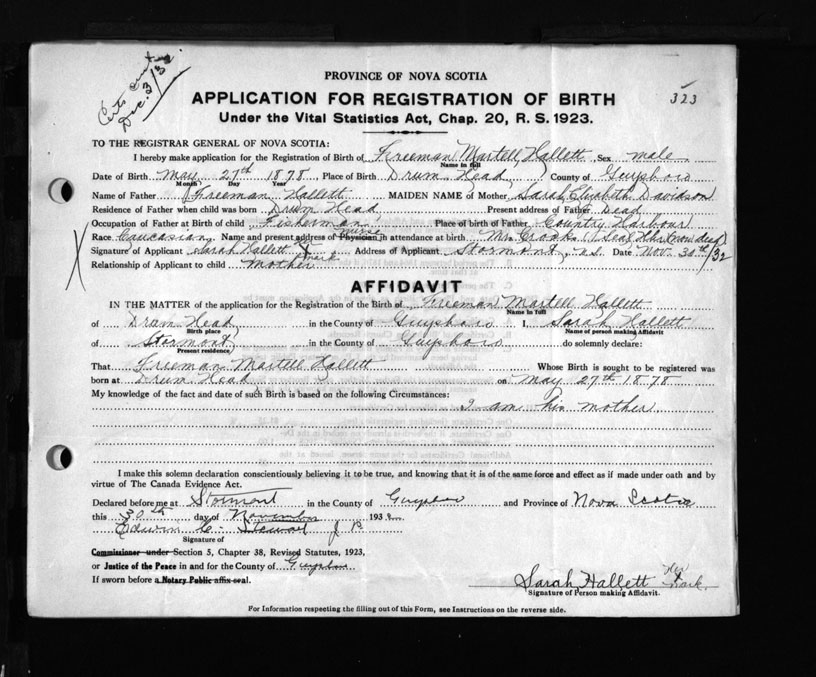 Certs sent
Dec. 3/32
PROVINCE OF NOVA SCOTIA
323
APPLICATION FOR REGISTRATION OF BIRTH
Under the Vital Statistics Act, Chap. 20, R. S. 1923.
TO THE REGISTRAR GENERAL OF NOVA SCOTIA:
I hereby make application for the Registration of Birth of Freeman Martell Hallett Sex male
Name in full
Date of Birth May 27th 1878 Place of Birth Drum Head, County of Guysboro
Month Day Year
Name of Father Freeman Hallett MAIDEN NAME of Mother Sarah Elizabeth Davidson
Residence of Father when child was born Drum Head, Present address of Father Dead
Occupation of Father at Birth of child Fisherman Place of birth of Father Country Harbour
Race Caucasian Name and present address of Physician nurse in attendance at birth Mrs Crooks (Seal Hbr) (now dead)
Signature of Applicant Sarah Hallett X mark Address of Applicant Stormont, N.S. Date Nov. 30th/32
Relationship of Applicant to child mother
AFFIDAVIT
IN THE MATTER of the application for the Registration of the Birth of Freeman Martell Hallett
Name in full
of Drum Head in the County of Guysboro I, Sarah Hallett
Birth place Name of person making Affidavit
of Stormont in the County of Guysboro do solemnly declare:
Present residence
That Freeman Martell Hallett Whose Birth is sought to be registered was
born at Drum Head on May 27th 1878
My knowledge of the fact and date of such Birth is based on the following Circumstances:
I am his mother
I make this solemn declaration conscientiously believing it to be true, and knowing that it is of the same force and effect as if made under oath and by
virtue of The Canada Evidence Act.
Declared before me at Stormont in the County of Guysboro and Province of Nova Scotia
this 30th day of November 1932
Edwin C. Stewart J P.
Signature of
Commissioner under Section 5, Chapter 38, Revised Statutes, 1923,
or Justice of the Peace in and for the County of Guysboro
If sworn before a Notary Public affix seal.
Sarah Hallett Her X mark.
Signature of Person making Affidavit.
For Information respecting the filling out of this Form, see Instructions on the reverse side.